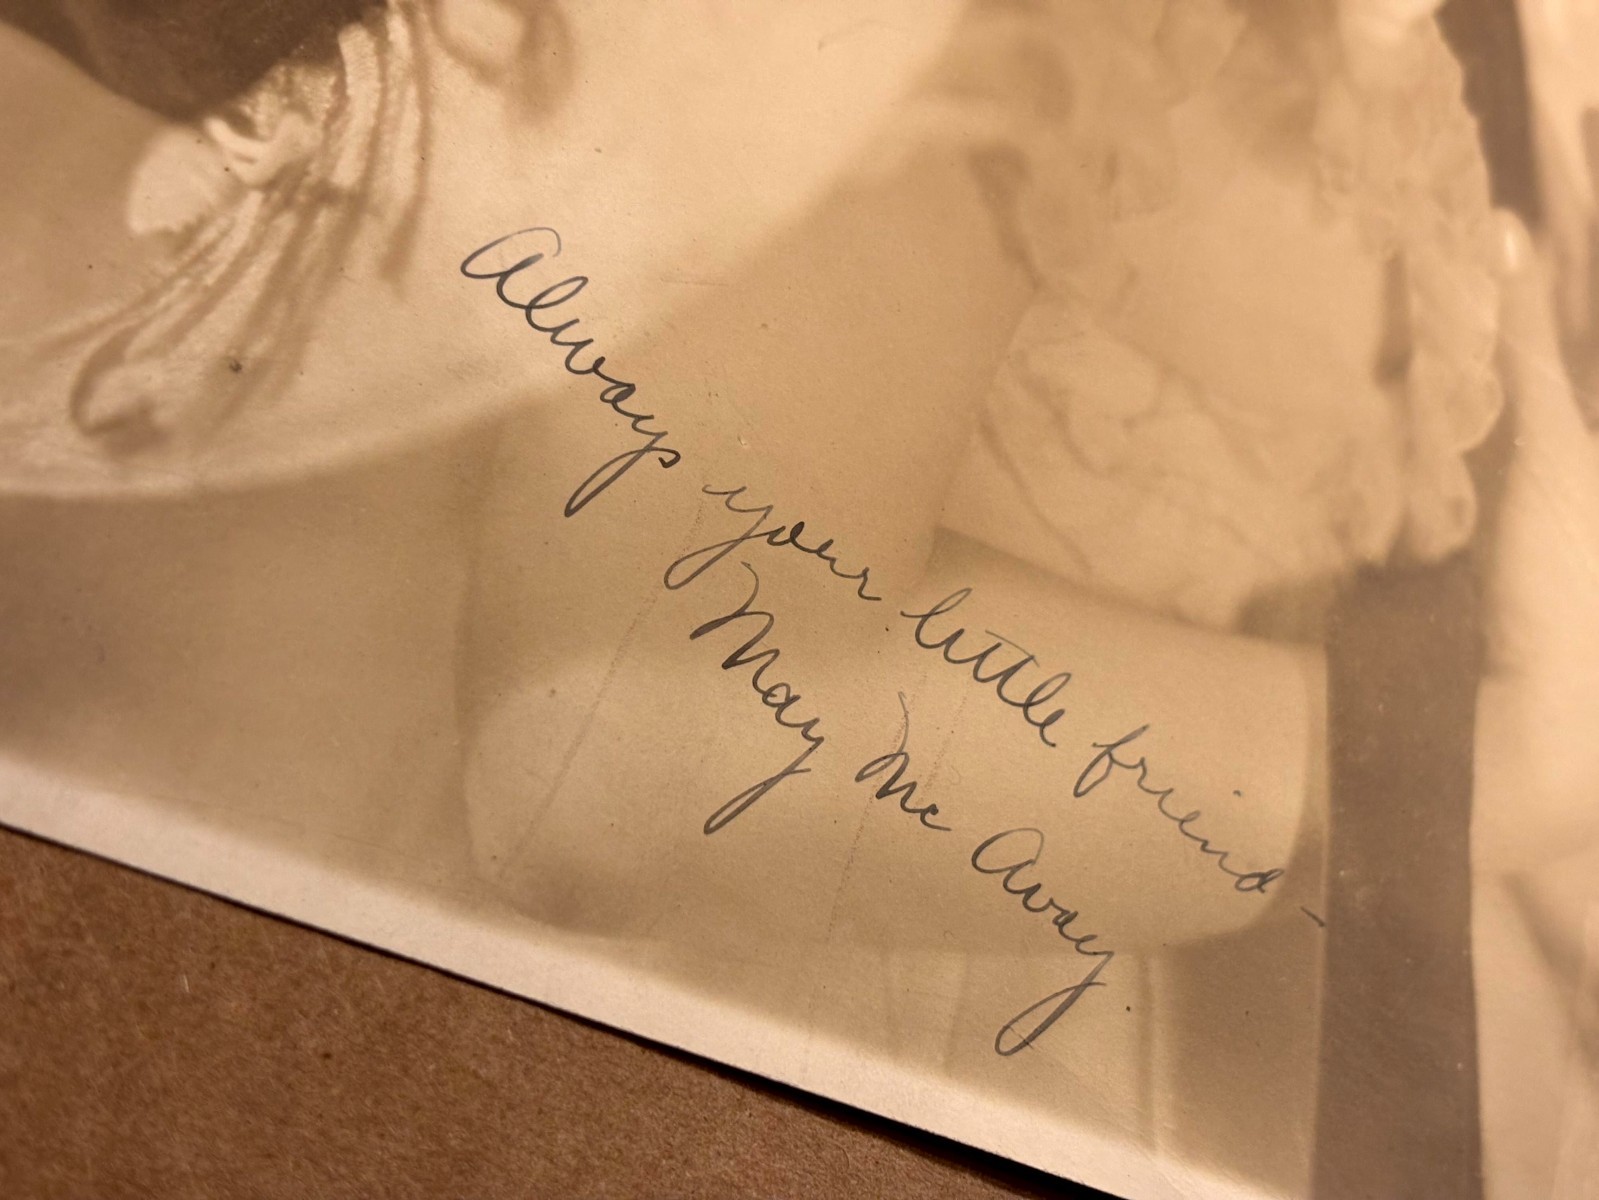 Always your little friend -
May Mc Avoy